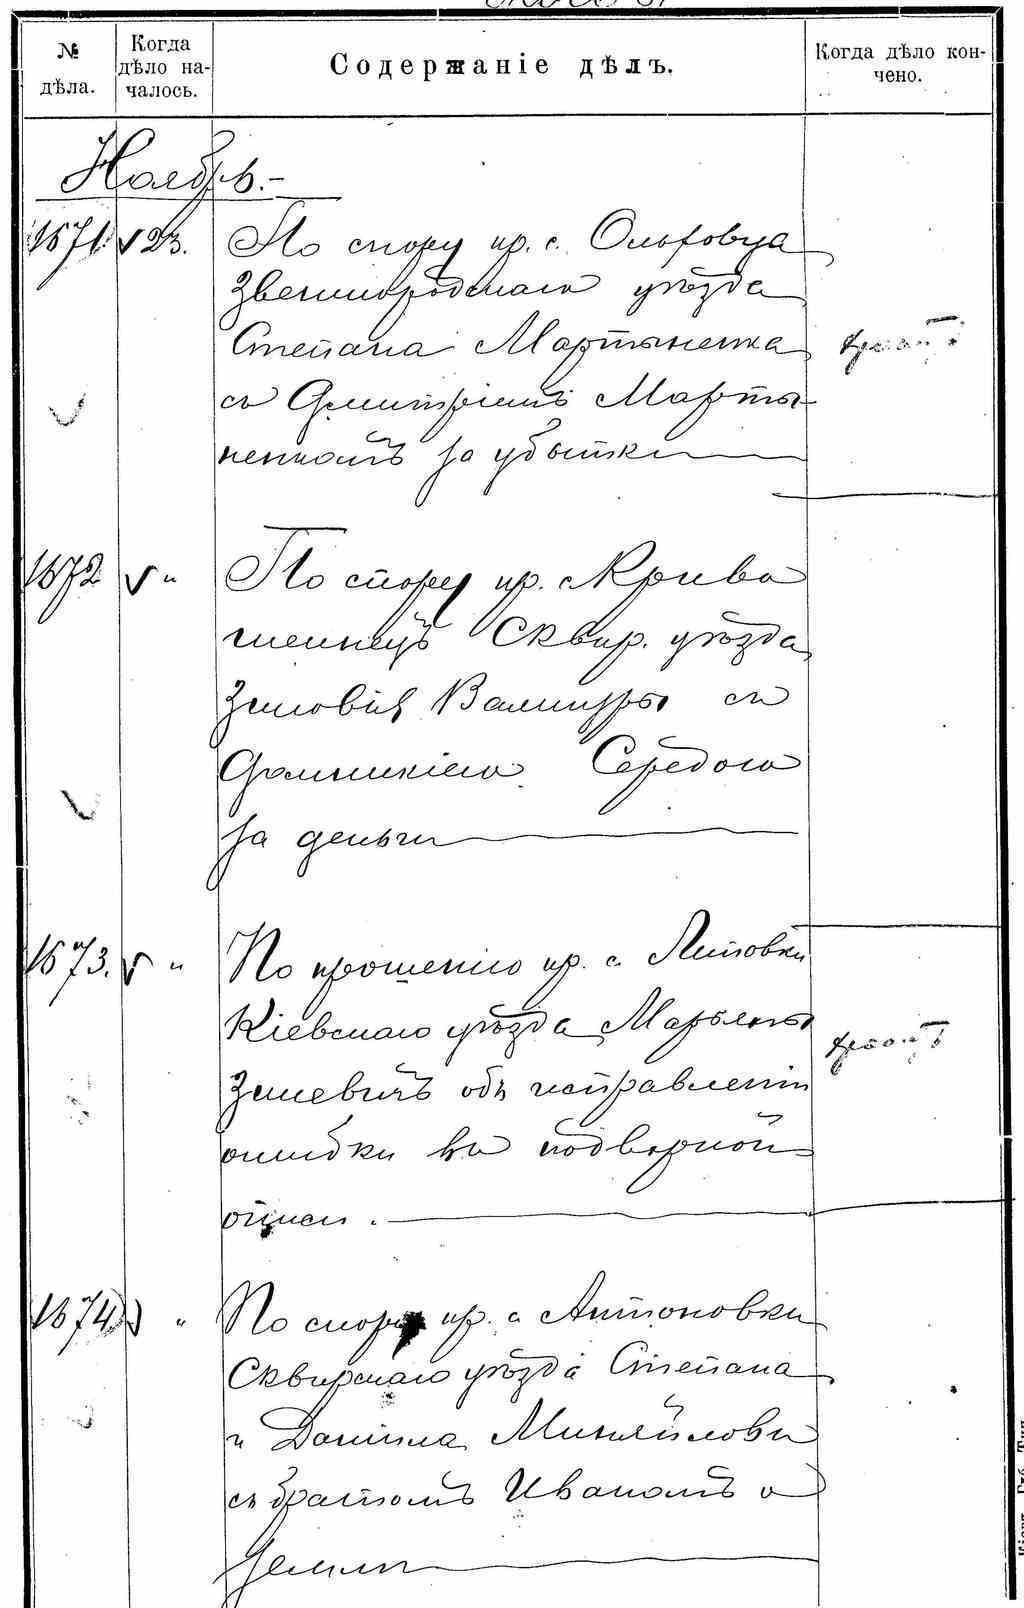 №
дѣла.
Когда
дѣло на-
чалось.
Содержаніе дѣлъ.
Когда дѣло кон-
чено.
Ноябрь.-
1671 23. По спору кр. с. Ольховца
Звенигородскаго уѣзда
Степана Мартыненка
съ Дмитріемъ Марты-
ненкомъ за убытки
1672 " По спору кр. с. Криво
шеинецъ Сквир. уѣзда
Зиновія
съ
Середою
за деньги
1673. " По прошенію кр. с. Литовки
Кіевскаго уѣзда Марьяны
объ исправленіи
ошибки въ подворной
описи.
1674 " По спору кр. с. Антоновки
Сквирскаго уѣзда Степана
и Даніила Миняйловы
съ братомъ Иваномъ о
землѣ